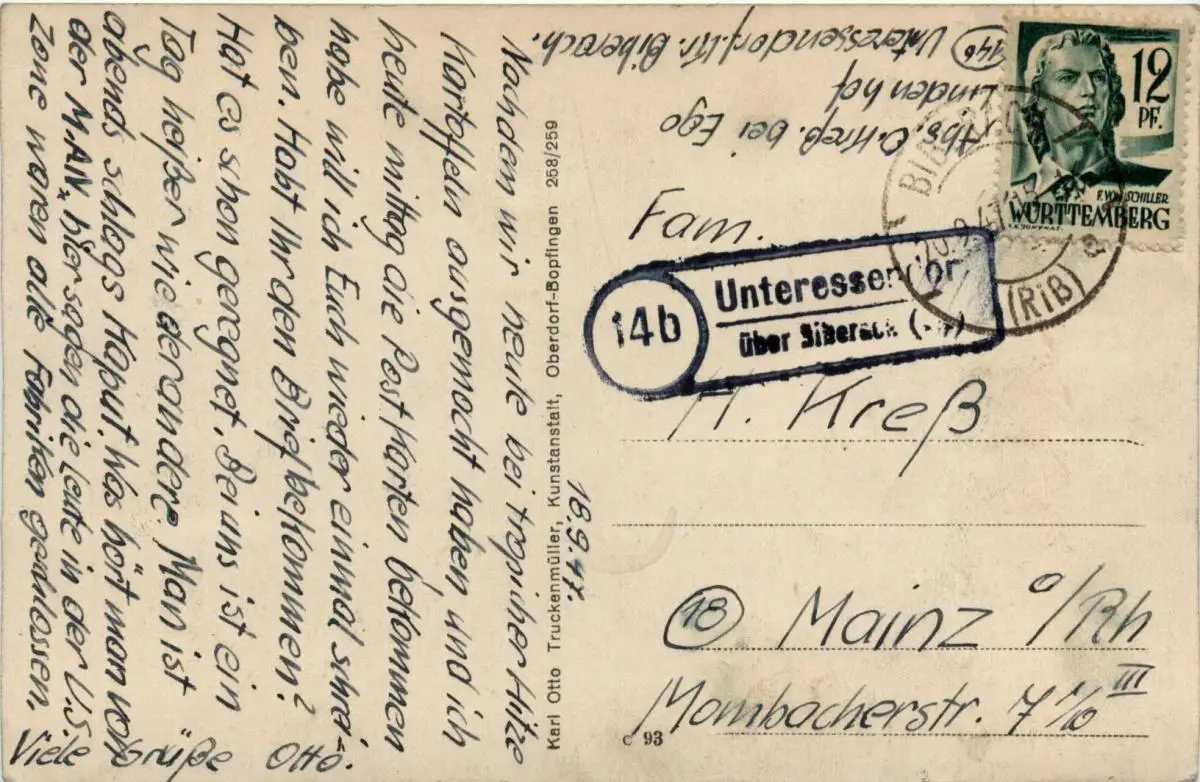 18.9.47.
Nachdem wir heute bei tropischer Hitze
Kartoffeln ausgemacht haben, und ich
heute mittag die Postkarten bekommen
habe will ich Euch wieder einmal schrei-
ben. Habt Ihr den Brief bekommen?
Hat es schon geregnet. Bei uns ist ein
Tag heißer wie der andere. Man ist
abends schlags kaput. Was hört man von
der M.AN, hier sagen die Leute in der U.S
Zone waren alle Fabriken geschlossen.
Viele Grüße Otto.
Karl Otto Truckenmüller, Kunstanstalt, Oberdorf-Bopfingen 258/259
Abs. O. Kreß. bei Ego
Lindenhof
14b Unteressendorf. Kr. Biberach.
12
PF.
F. VON SCHILLER
WÜRTTEMBERG
(RIß)
a
14b
Unteressendorf
über Biberach
Fam.
H. Kreß
18 Mainz a/Rh
Mombacherstr. 7 1/10 III
c 93